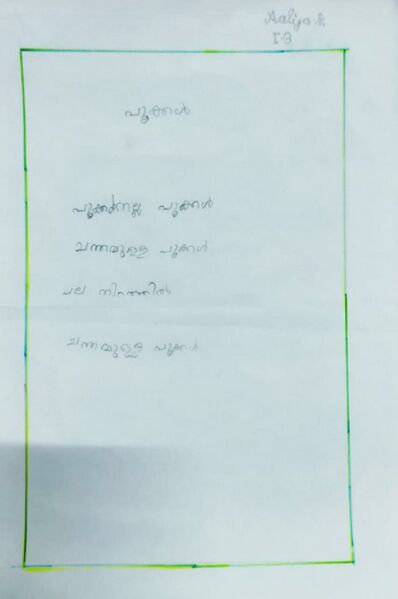 Aaliya.k
I.B
പൂക്കൾ
പൂക്കൾനല്ല പൂക്കൾ
ചന്തമുള്ള പൂക്കൾ
പല നിറത്തിൽ
ചന്തമുള്ള പൂക്കൾ